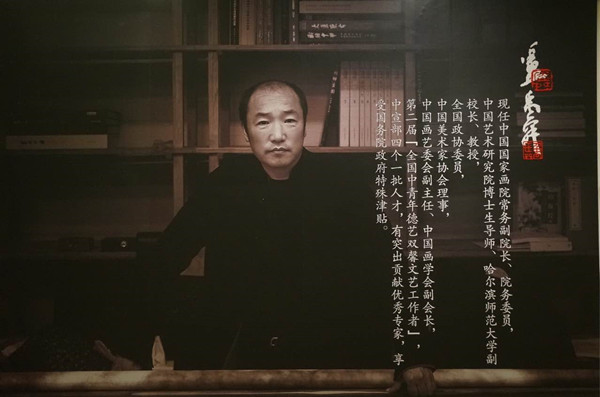 现任中国国家画院常务副院长、院务委员，
中国艺术研究院博士生导师、哈尔滨师范大学副
校长、教授，
全国政协委员，
中国美术家协会理事，
中国画艺委会副主任、中国画学会副会长，
第二届「全国中青年德艺双馨文艺工作者」，
中宣部四个一批人才，有突出贡献优秀专家，享
受国务院政府特殊津贴。